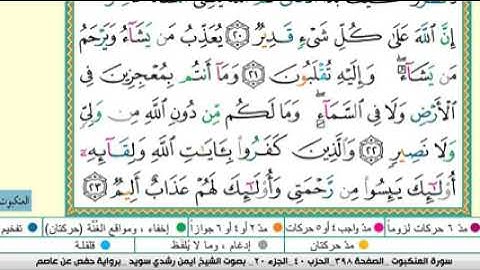 إِنَّ ٱللَّهَ عَلَىٰ كُلِّ شَىْءٍ قَدِيرٌ ٢٠ يُعَذِّبُ مَن يَشَآءُ وَيَرْحَمُ
مَن يَشَآءُ ۖ وَإِلَيْهِ تُقْلَبُونَ ٢١ وَمَآ أَنتُم بِمُعْجِزِينَ فِى
ٱلْأَرْضِ وَلَا فِى ٱلسَّمَآءِ ۖ وَمَا لَكُم مِّن دُونِ ٱللَّهِ مِن وَلِىٍّ
وَلَا نَصِيرٍ ٢٢ وَٱلَّذِينَ كَفَرُوا۟ بِـَٔايَـٰتِ ٱللَّهِ وَلِقَآئِهِۦٓ
أُو۟لَـٰٓئِكَ يَئِسُوا۟ مِن رَّحْمَتِى وَأُو۟لَـٰٓئِكَ لَهُمْ عَذَابٌ أَلِيمٌ ٢٣
العنكبوت
مدّ ٦ حركات لزوماً مدّ ٢ أو ٤ أو ٦ جوازاً إخفاء، ومواقع الغُنَّة (حركتان) تفخيم
مدّ واجب ٤ أو ٥ حركات مدّ حركتان إدغام، وما لا يُلفَظ قلقلة
سورة العنكبوت _الصفحة ٣٩٨ _الحزب ٤٠ _الجزء ٢٠ _ بصوت الشيخ ايمن رشدي سويد _ برواية حفص عن عاصم